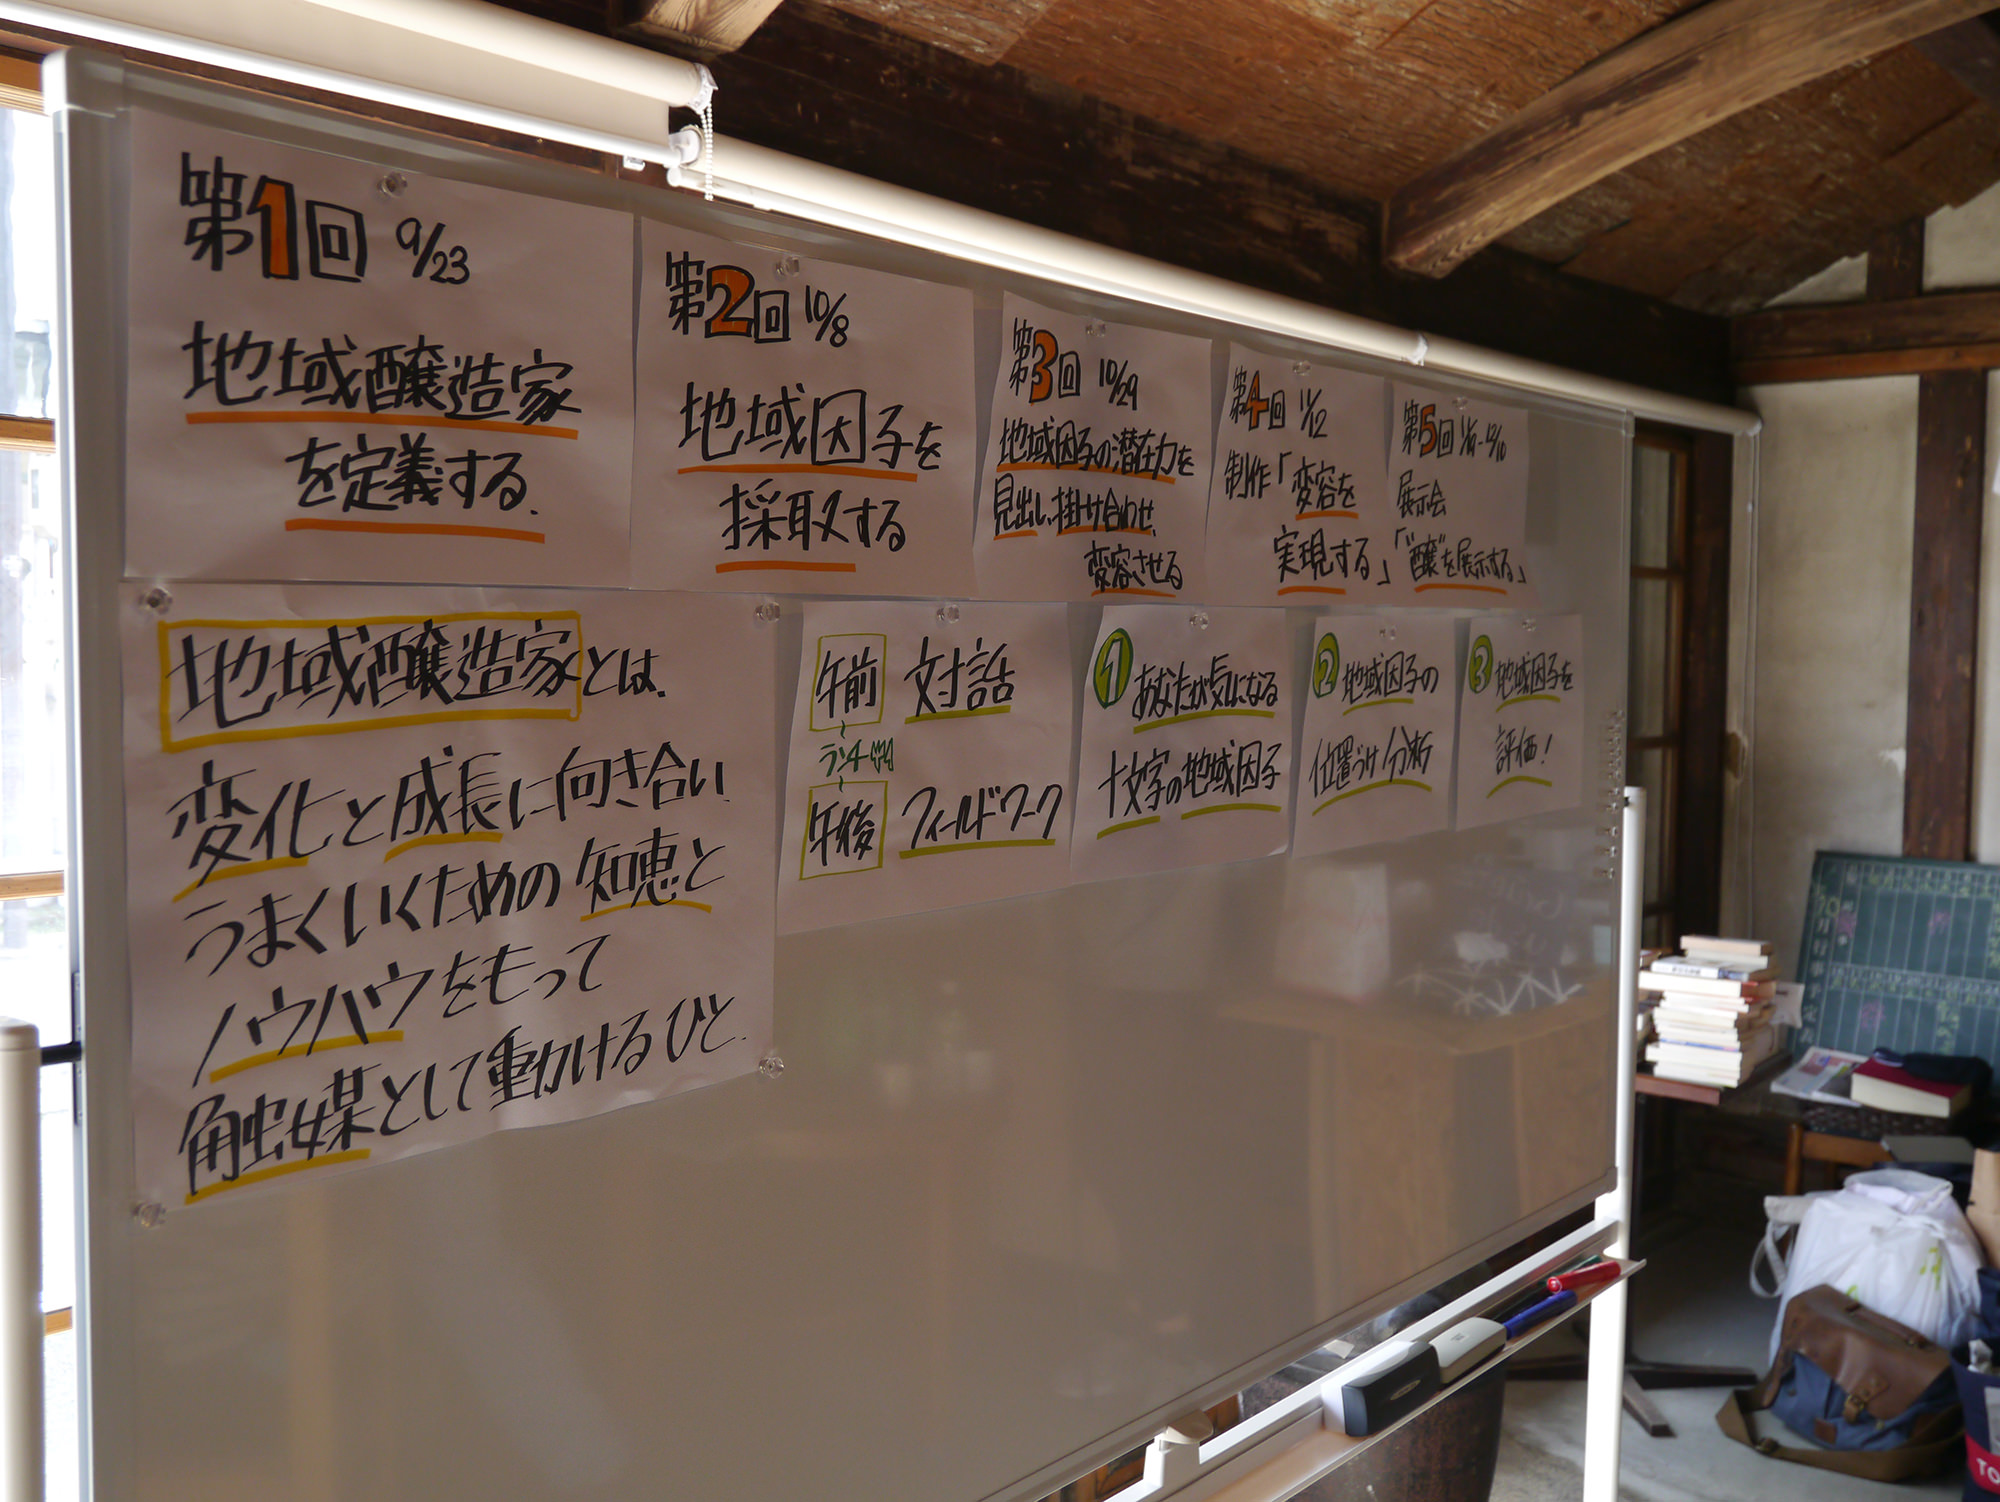 第1回 9/23
地域醸造家
を定義する.
第2回 10/8
地域因子を
採取する
第3回 10/29
地域因子の潜在力を
見出し、掛け合わせ、
変容させる
第4回 11/12
制作「変容を
実現する」
第5回
展示会
「"醸"を展示する」
地域醸造家とは、
変化と成長に向き合い
うまくいくための知恵と
ノウハウをもって
触媒として動かけるひと.
午前 対話
ランチ
午後 フィールドワーク
1 あなたが気になる
十文字の地域因子
2 地域因子の
位置づけ/分析
3 地域因子を
評価!